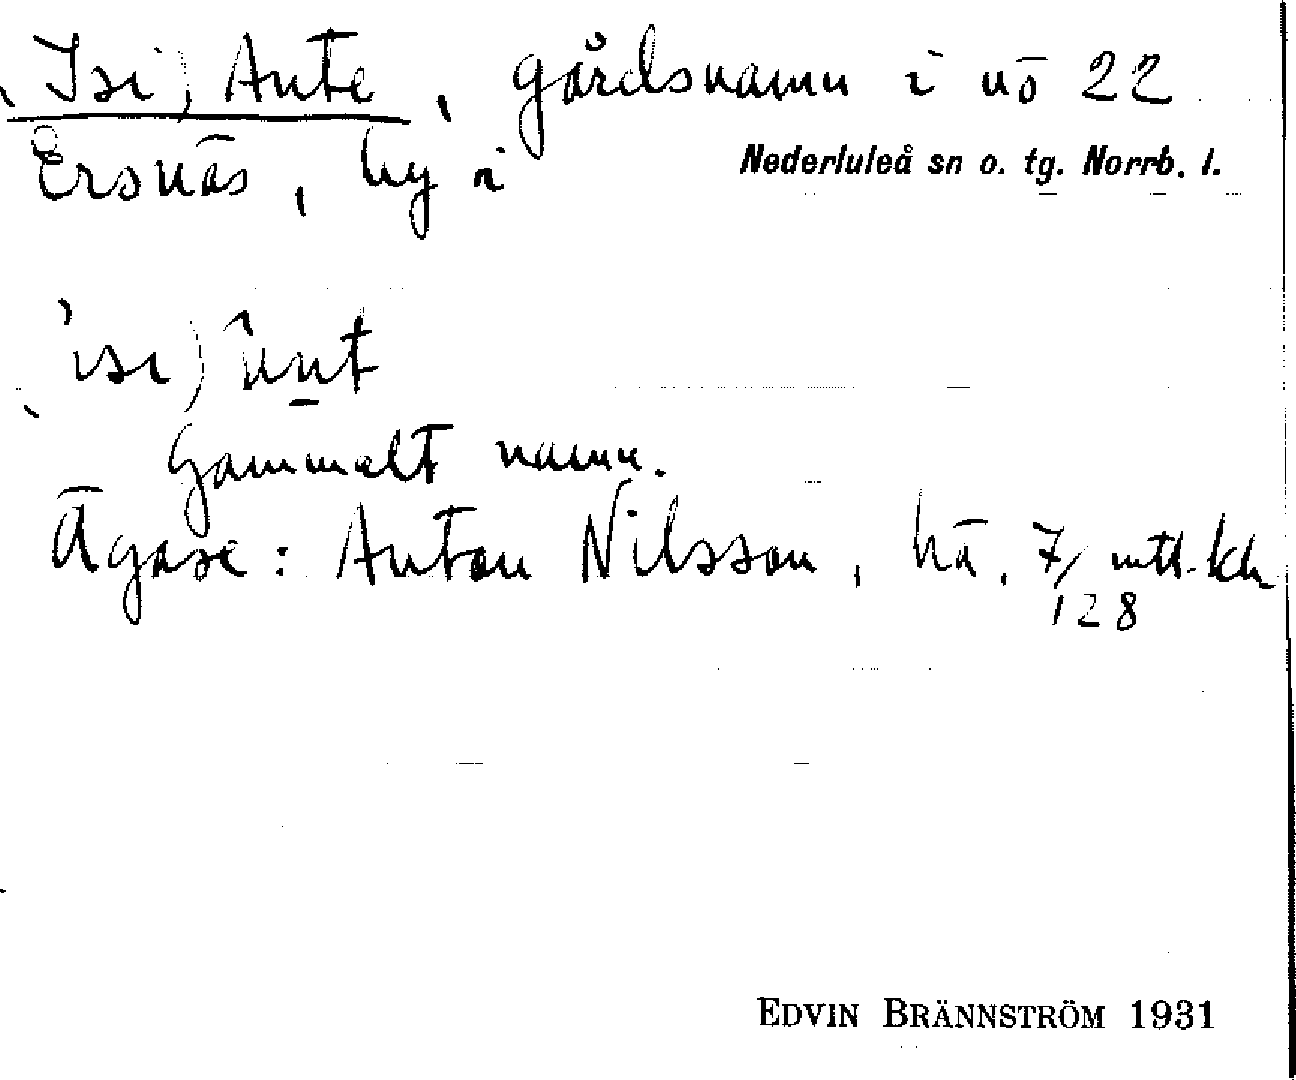 Isi) Ante, gårdsnamn i nö 22
Ersnäs, by i Nederluleå sn o. tg. Norrb. l.
Gammalt namn.
Ägare: Anton Nilsson, hä. 7/128 mtl. kh
EDVIN BRÄNNSTRÖM 1931